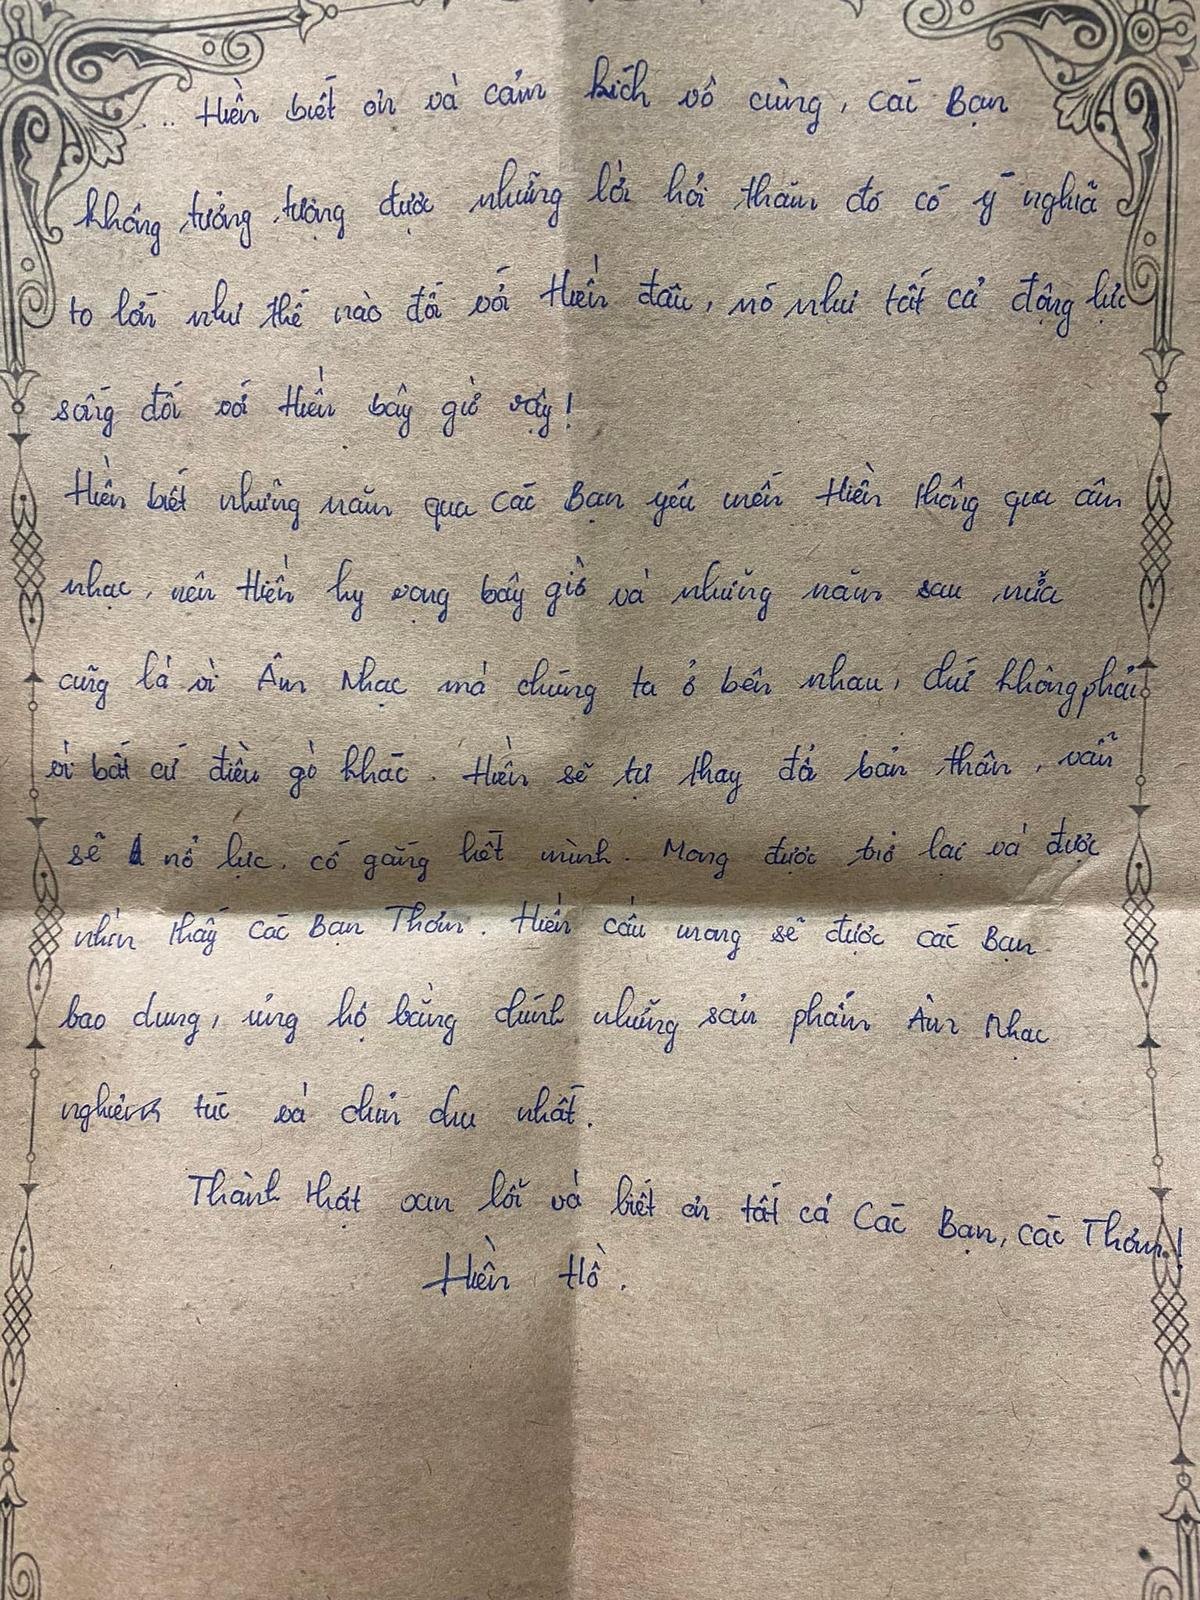 ... Hiền biết ơn và cảm kích vô cùng, Các Bạn
không tưởng tượng được những lời hỏi thăm đó có ý nghĩa
to lớn như thế nào đối với Hiền đâu, nó như tất cả động lực
sống đối với Hiền bây giờ vậy!
Hiền biết những năm qua Các Bạn yêu mến Hiền thông qua âm
nhạc, nên Hiền hy vọng bây giờ và những năm sau nữa
cũng là vì Âm Nhạc mà chúng ta ở bên nhau, chứ không phải
vì bất cứ điều gì khác. Hiền sẽ tự thay đổi bản thân, vẫn
sẽ nổ lực, cố gắng hết mình. Mong được trở lại và được
nhìn thấy Các Bạn Thơm. Hiền cầu mong sẽ được các Bạn
bao dung, ủng hộ bằng chính những sản phẩm Âm Nhạc
nghiêm túc và chỉn chu nhất.
Thành thật xin lỗi và biết ơn tất cả Các Bạn, các Thơm!
Hiền Hồ.